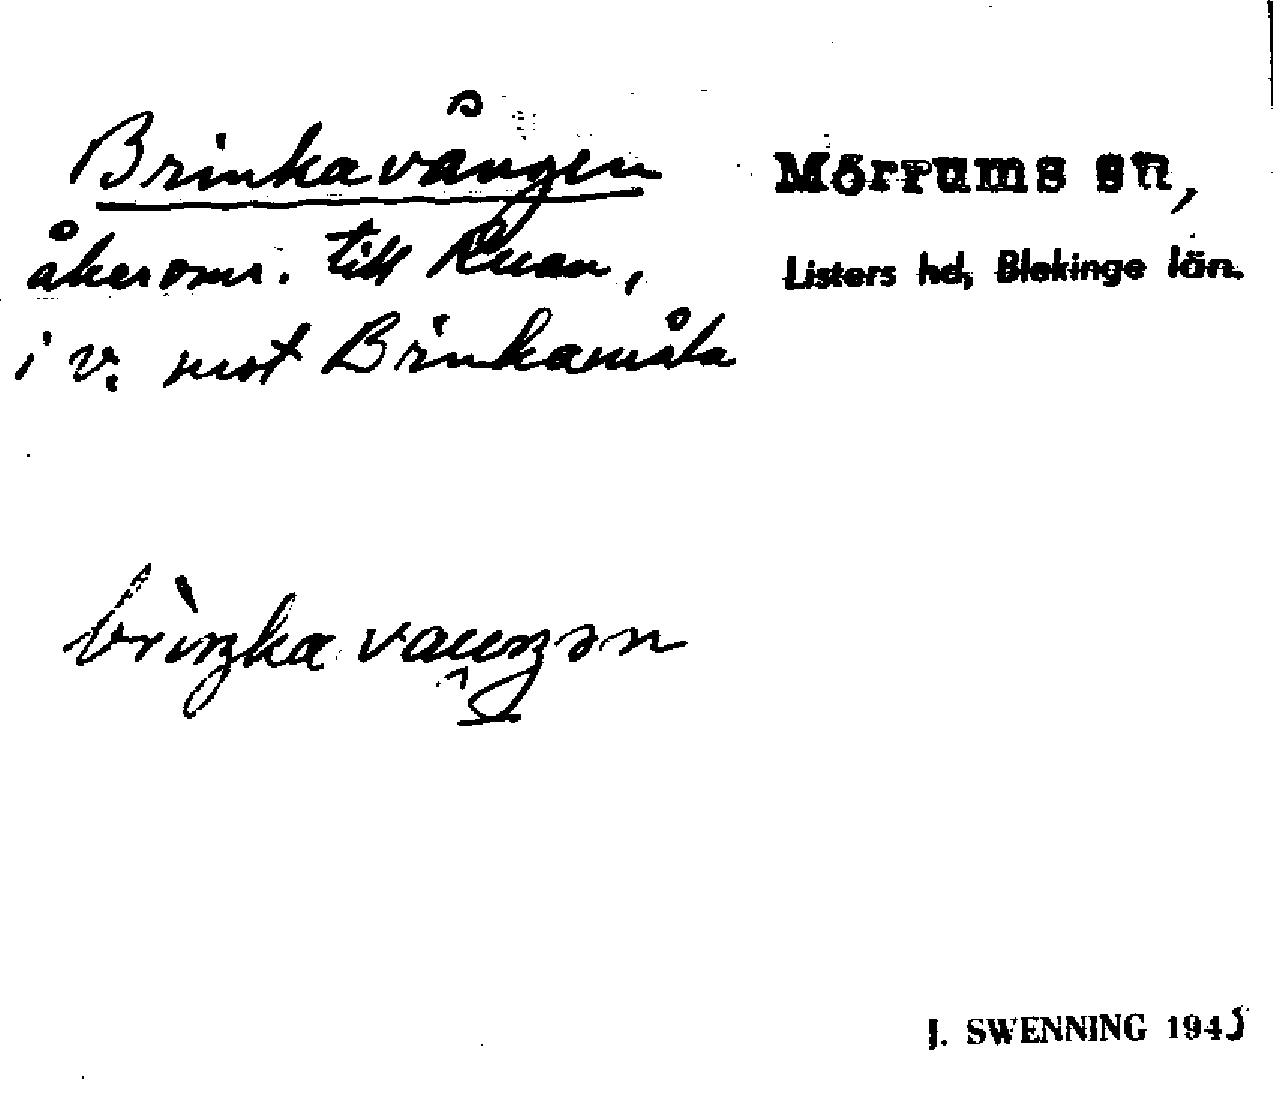 Brinkavången
Mörrums sn,
åkeromr. till Ruan,
Listers hd, Blekinge län.
i v. mot Brinkamåla
brìŋka vauŋən
J. SWENNING 1945